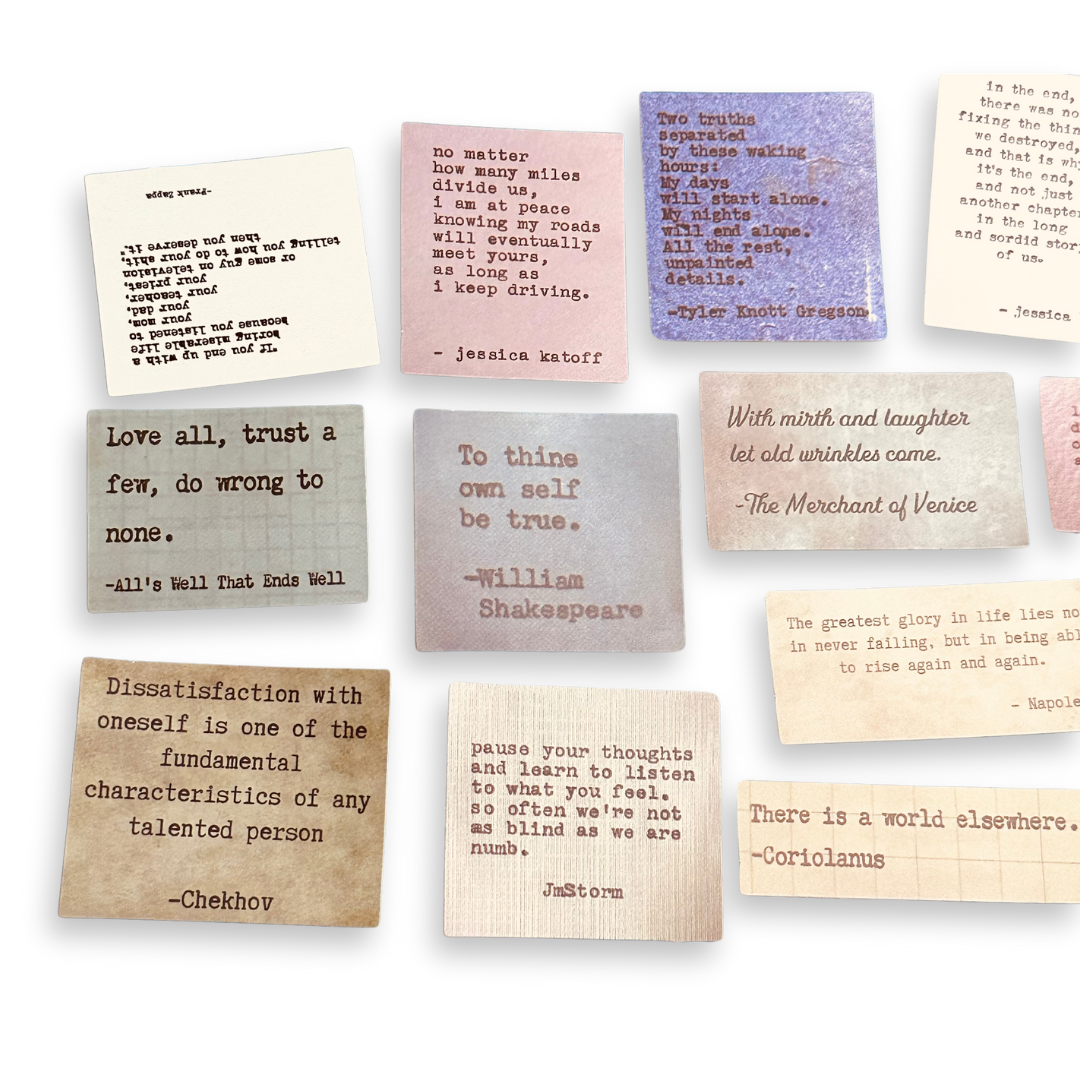 "If you end up with a
boring miserable life
because you listened to
your mom,
your dad,
your teacher,
your priest,
or some guy on television
telling you how to do your shit,
then you deserve it."
-Frank Zappa
no matter
how many miles
divide us,
i am at peace
knowing my roads
will eventually
meet yours,
as long as
i keep driving.
- jessica katoff
Two truths
separated
by these waking
hours:
My days
will start alone.
My nights
will end alone.
All the rest,
unpainted
details.
-Tyler Knott Gregson
in the end,
there was no
fixing the thin
we destroyed,
and that is why
it's the end,
and not just
another chapter
in the long
and sordid stor
of us.
- jessica
Love all, trust a
few, do wrong to
none.
-All's Well That Ends Well
To thine
own self
be true.
-William
Shakespeare
With mirth and laughter
let old wrinkles come.
-The Merchant of Venice
The greatest glory in life lies no
in never failing, but in being abl
to rise again and again.
- Napole
Dissatisfaction with
oneself is one of the
fundamental
characteristics of any
talented person
-Chekhov
pause your thoughts
and learn to listen
to what you feel.
so often we're not
as blind as we are
numb.
JmStorm
There is a world elsewhere.
-Coriolanus